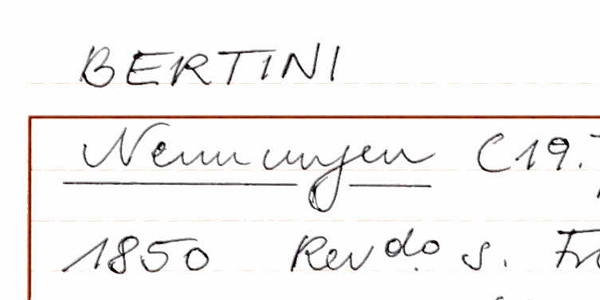 BERTINI
Nennungen (19.
1850 Revdo s. Fr